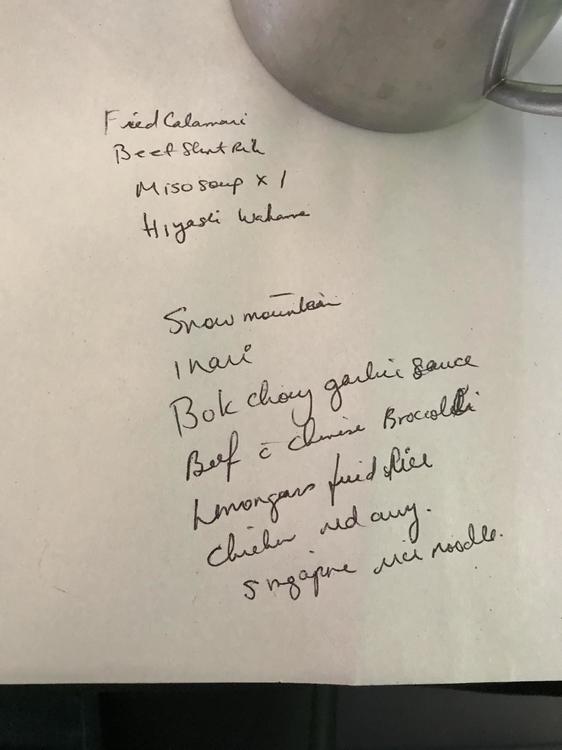 Fried Calamari
Beef Short Rib
Miso soup x 1
Hiyashi Wakame
Snow mountain
Inari
Bok choy garlic sauce
Beef c̄ chinese Broccoli
Lemongrass fried Rice
Chicken red curry.
Singapore rice noodle.